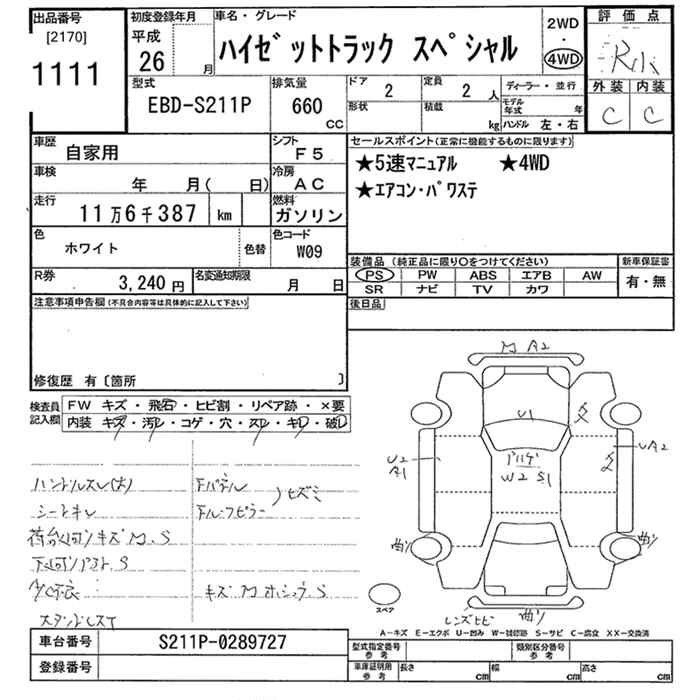 出品番号
[2170]
1111
初度登録年月
平成
26 月
車名・グレード
ハイゼットトラック スペシャル
2WD
・
4WD
評価点
外装 内装
C C
型式
EBD-S211P
排気量
660
CC
ドア
2
定員
2 人
形状
積載
kg
ディーラー・並行
モデル年式 年
ハンドル 左・右
車歴
自家用
シフト
F5
車検
年 月( 日)
冷房
AC
走行
11万6千387 km
燃料
ガソリン
色
ホワイト
色替
色コード
W09
R券
3,240円
名変通知期限
月 日
セールスポイント(正常に機能するものに限ります)
★5速マニュアル ★4WD
★エアコン・パワステ
装備品 (純正品に限り〇をつけてください)
新車保証書
PS PW ABS エアB AW
SR ナビ TV カワ
有・無
後日品
注意事項申告欄(不具合内容等は具体的に記入して下さい)
修復歴 有〔箇所 〕
検査員記入欄
FW キズ・飛石・ヒビ割・リペア跡・×要
内装 キズ・汚レ・コゲ・穴・スレ・キレ・破レ
ハンドルスレ(大)
シートキレ
下バデル
ヒズミ
キズ M
M A2
U1
U2
A1
W2 S1
UA2
曲リ
曲リ
曲リ
レンズヒビ
スペア
A−キズ E−エクボ U−凹み W−補修跡 S−サビ C−腐食 XX−交換済
車台番号
S211P-0289727
登録番号
型式指定番号 参考
類別区分番号 参考
車庫証明用 参考
長さ cm
幅 cm
高さ cm